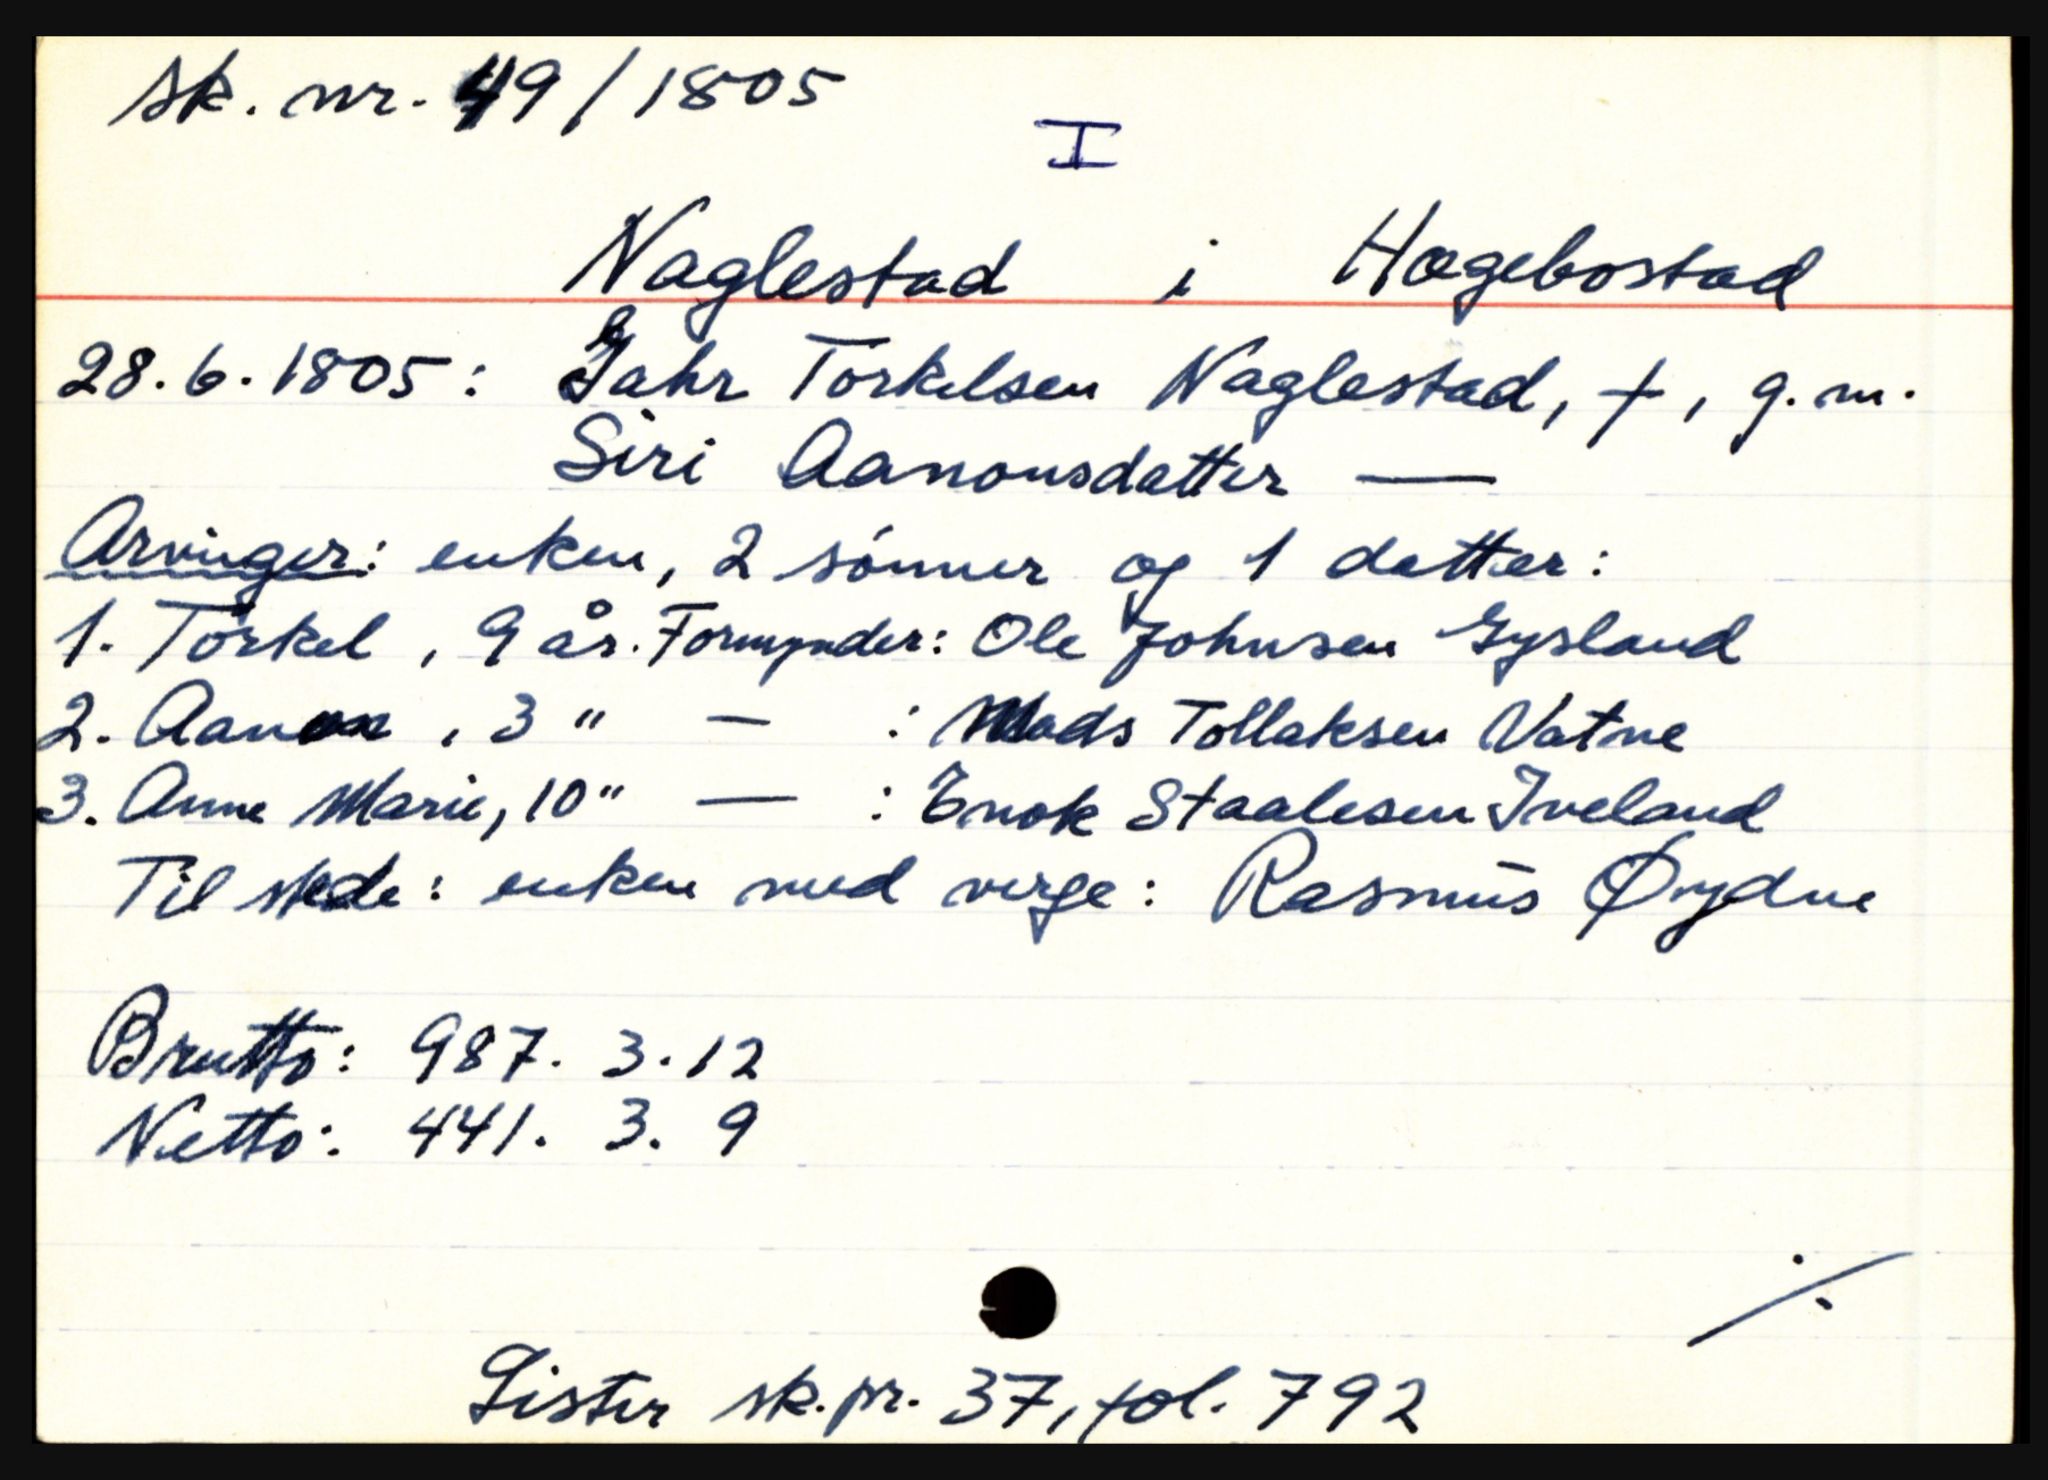 sk. nr. 49/1805
I
Naglestad i Hægebostad
28.6.1805: Gahr Torkelsen Naglestad, †, g.m.
Siri Aanonsdatter —
Arvinger: enken, 2 sónner og 1 datter:
1. Torkel, 9 år. Formynder: Ole Johnsen Gysland
2. Aanon, 3 " — : Mads Tollaksen Vatne
3. Anne Marie, 10 " — : Enok Staalesen Iveland
Til stede: enken med verge: Rasmus Øydne
Brutto: 987. 3. 12
Netto: 441. 3. 9
./.
Lister sk.pr. 37, fol. 792